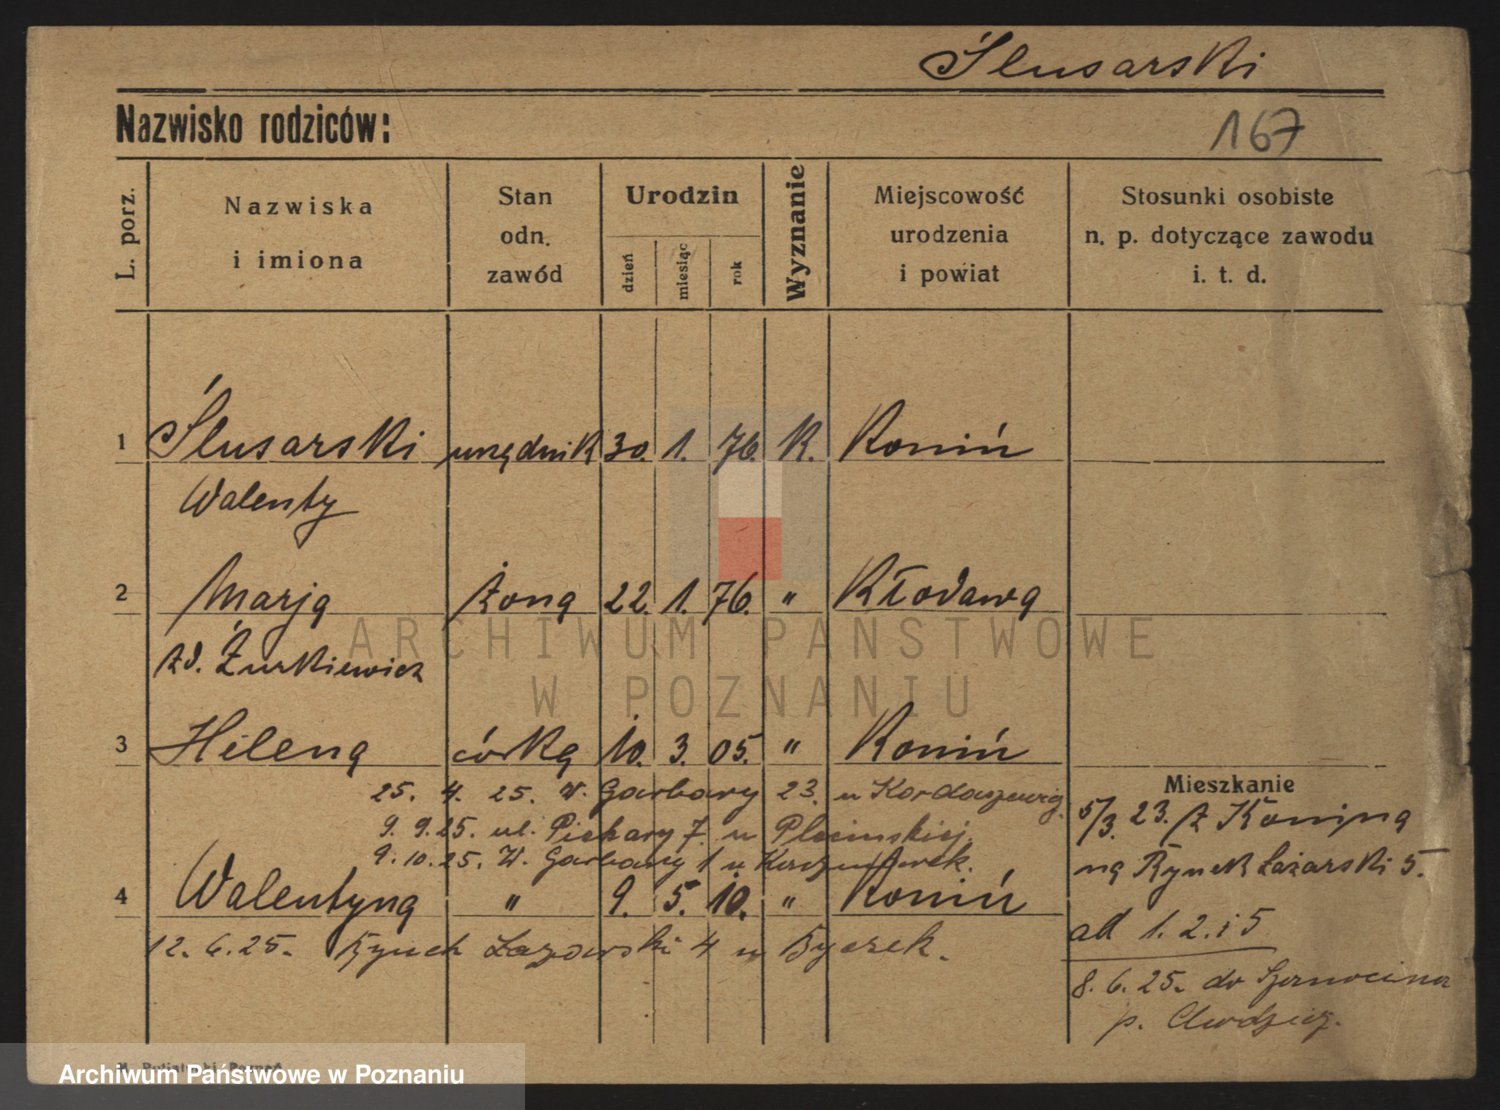 Ślusarski
Nazwisko rodziców:
167
L. porz.
Nazwiska
i imiona
Stan
odn.
zawód
Urodzin
dzień
miesiąc
rok
Wyznanie
Miejscowość
urodzenia
i powiat
Stosunki osobiste
n. p. dotyczące zawodu
i. t. d.
1 Ślusarski urzędnik 30. 1. 76. K. Konin
Walenty
2 Marja żona 22. 1. 76. " Kłodawa
zd. Żurkiewicz
3 Helena córka 10. 3. 05. " Konin
25. 4. 25. W. Garbary 23. u
9. 9. 25. ul. Piekary 7. u
9. 10. 25. W. Garbary 1 u
4 Walentyna " 9. 5. 10. " Konin
12. 6. 25. Rynek Łazarski 4 u
Mieszkanie
5/3. 23. z Konina
na Rynek Łazarski 5.
ad 1. 2. i 5
8. 6. 25. do
p.
ARCHIWUM PAŃSTWOWE
W POZNANIU
Archiwum Państwowe w Poznaniu